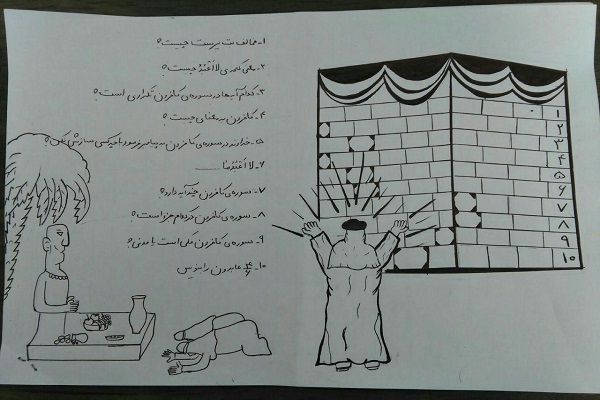 ۱- مخالف بت پرست چیست؟
۲- معنی کلمه‌ی لا اَعْبُدُ چیست؟
۳- کدام آیه‌ها در سوره‌ی کافرون تکراری است؟
۴- کافرون به معنای چیست؟
۵- خداوند در سوره‌ی کافرون به پیامبر فرمود با چه کسی سازش نکن؟
۶- لا اَعْبُدُ ما ......
۷- سوره‌ی کافرون چند آیه دارد؟
۸- سوره‌ی کافرون در کدام جزء است؟
۹- سوره‌ی کافرون مکی است یا مدنی؟
۱۰- عابدون را بنویس
۱
۲
۳
۴
۵
۶
۷
۸
۹
۱۰